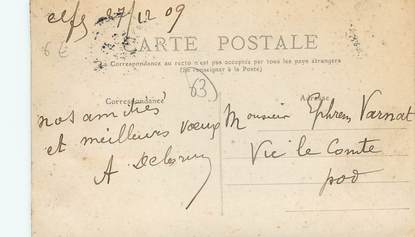 27/12 09
CARTE POSTALE
La Correspondance au recto n'est pas acceptée par tous les pays étrangers
(Se renseigner à la Poste)
63
Correspondance
Adresse
nos amitiés
et meilleurs vœux
A
Monsieur Ephrem Varnat
Vic le Comte